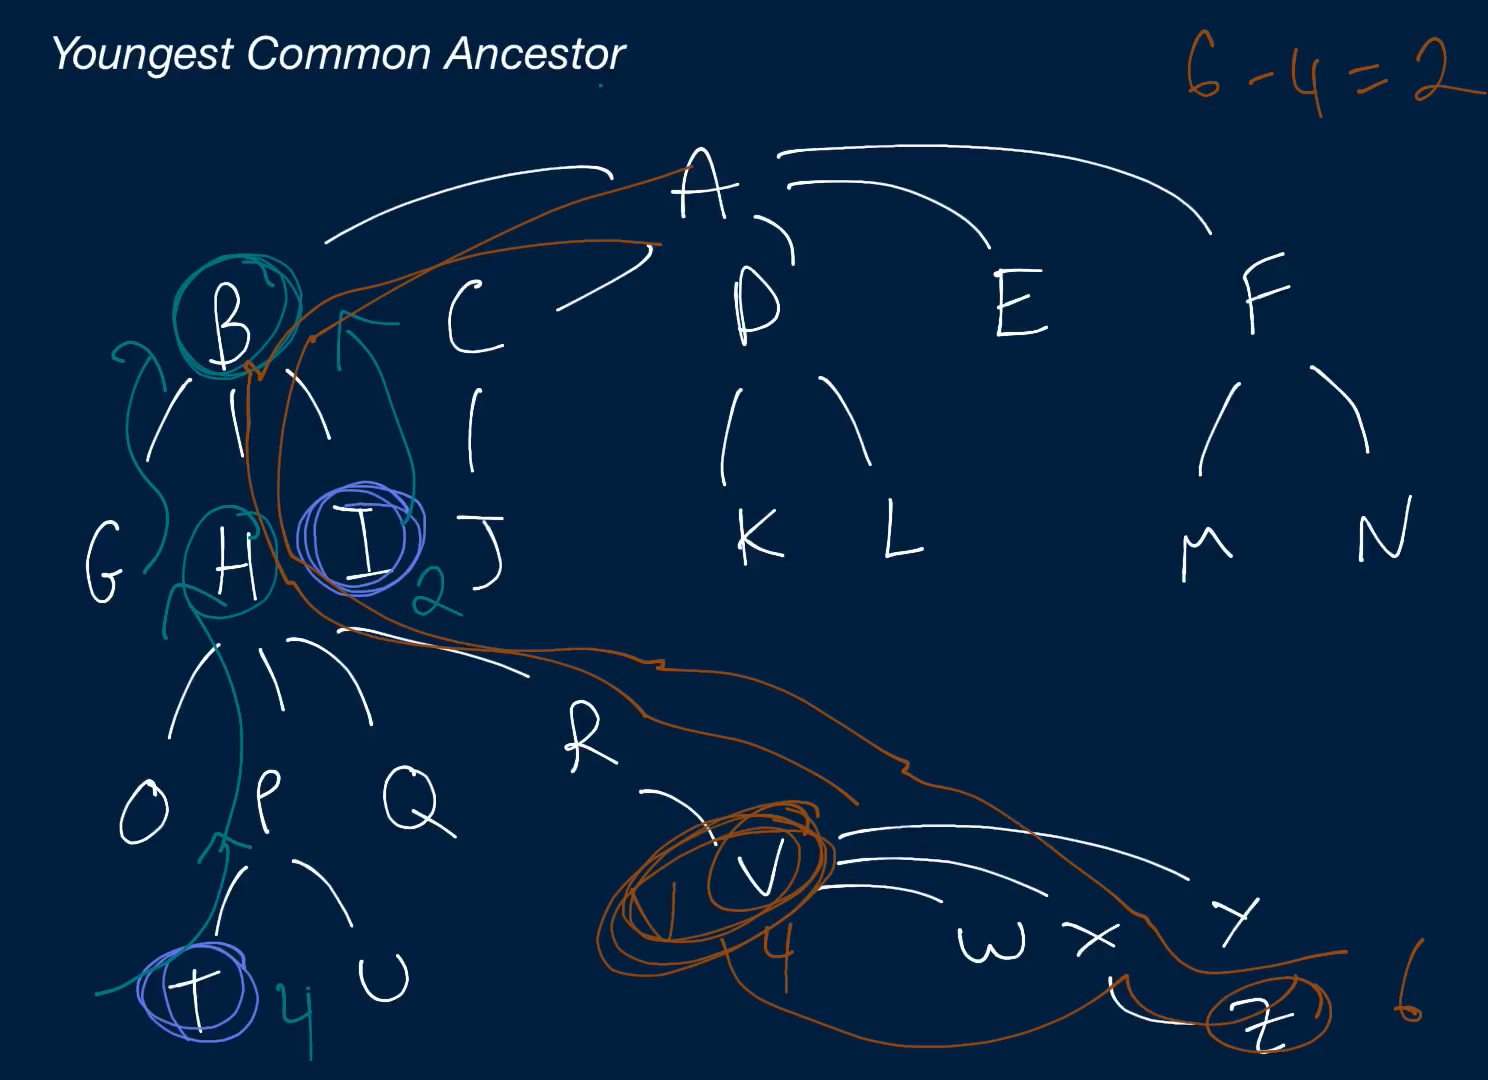 Youngest Common Ancestor
6 - 4 = 2
A
B C D E F
G H I J K L M N
2
R
O P Q
V
4
W X Y
T 4 U
Z 6